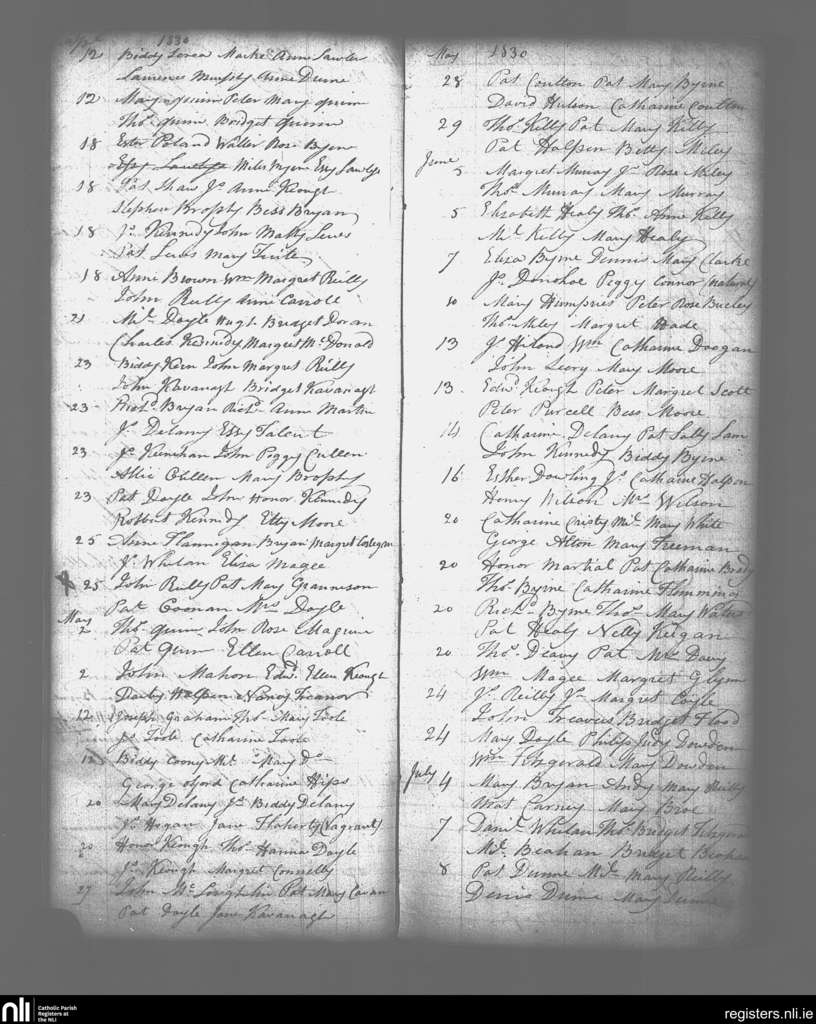 1830
12 Biddy Marke Anne Lawler
Laurence Murphy Anne Dunne
12 Mary Quinn Peter Mary Quinn
Thos. Quinn Bridget Quinn
18 Ester Poland Walter Rose Byrne
Miles Essy Lawlys
18 Pat Shaw Js. Anne Keough
Stephen Brophy Bess Bryan
18 Js. Kennedy John Matty Lewis
Pat Mary
18 Anne Brown Wm. Margret Reilly
John Reilly Anne Carroll
21 Ml. Doyle Hugh Bridget Doran
Charles Kennedy Margret McDonald
23 Biddy Kern John Margret Reilly
John Kavanagh Bridget Kavanagh
23 Richd. Bryan Richd. Anne Martin
Js. Delany Essy Talent
23 Js. Keenehan John Peggy Cullen
Allie Cullen Mary Brophy
23 Pat Doyle John Honor Kennedy
Robbert Kennedy Etty Moore
25 Anne Flannigan Bryan Margret
Js. Whelan Eliza Magee
25 John Reilly Pat Mary
Pat Coonan Mrs. Doyle
May
2 Thos. Quinn John Rose Maguire
Pat Quinn Ellen Carroll
2 John Mahon Edwd. Ellen Keough
Darby Halpen Nancy Treanor
12 Joseph Graham Thos. Mary Toole
Js. Toole Catharine Toole
12 Biddy Coony Ml. Mary Do.
George Catharine Hips
20 Mary Delany Js. Biddy Delany
Js. Hogan Jane Flaherty (Vagrant)
20 Honor Keough Thos. Hanna Doyle
Js. Keough Margret Connelly
27 John McLoughlin Pat Mary Cavan
Pat Doyle Jane Kavanagh
May 1830
28 Pat Coulton Pat Mary Byrne
David Hutson Catharine Coulton
29 Thos. Kelly Pat Mary Kelly
Pat Halpen Betty Miley
June
5 Margret Murray Js. Rose Miley
Thos. Murray Mary Murray
5 Elizabeth Healy Thos. Anne Kelly
Ml. Kelly Mary Healy
7 Eliza Byrne Dennis Mary Clarke
Js. Donohoe Peggy Connor (natural)
10 Mary Humphries Peter Rose Buckley
Thos. Margret Hade
13 Js. Wm. Catharine Doogan
John Leory Mary Moore
13 Edwd. Keough Peter Margret Scott
Peter Purcell Bess Moore
14 Catharine Delany Pat Sally Lam
John Kennedy Biddy Byrne
16 Esther Dowling Js. Catharine Halpen
Henry Wilson Mrs. Wilson
20 Catharine Cristy Ml. Mary White
George Alton Mary Freeman
20 Honor Martial Pat Catharine Brady
Thos. Byrne Catharine Flemming
20 Richd. Byrne Thos. Mary Waters
Pat Healy Nelly Keegan
20 Thos. Deavy Pat Davy
Wm. Magee Margret Glynn
24 Js. Reilly Js. Margret Coyle
John Treavers Bridget Flood
24 Mary Doyle Philip Judy Dowden
Wm. Fitzgerald Mary Dowden
July 4 Mary Bryan Andy Mary Reilly
Mat Carney Mary Broe
7 Danl. Whelan Thos. Bridget
Ml. Beahan Bridget Beahan
8 Pat Dunne Ml. Mary Reilly
Dennis Dunne Mary Dunne
nli Catholic Parish
Registers at
the NLI
registers.nli.ie